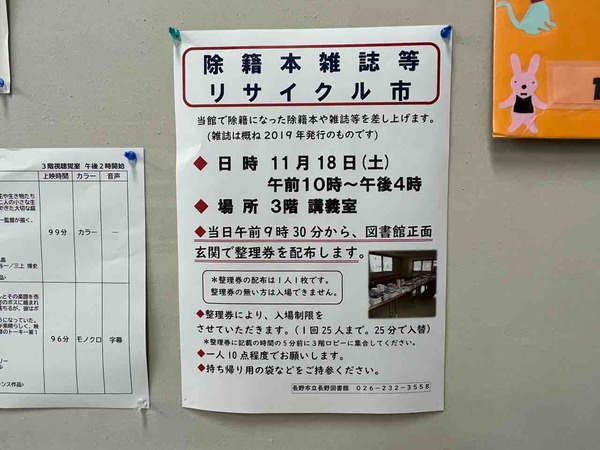 除籍本雑誌等
リサイクル市
当館で除籍になった除籍本や雑誌等を差し上げます。
(雑誌は概ね2019年発行のものです)
◆日時 11月18日(土)
午前10時～午後4時
◆場所 3階 講義室
◆当日午前9時30分から、図書館正面
玄関で整理券を配布します。
＊整理券の配布は1人1枚です。
整理券の無い方は入場できません。
◆整理券により、入場制限を
させていただきます。(1回25人まで。25分で入替)
＊整理券に記載の時間の5分前に3階ロビーに集合してください。
◆一人10点程度でお願いします。
◆持ち帰り用の袋などをご持参ください。
長野市立長野図書館 026-232-3558
3階視聴覚室 午後2時開始
上映時間 カラー 音声
99分 カラー ―
96分 モノクロ 字幕